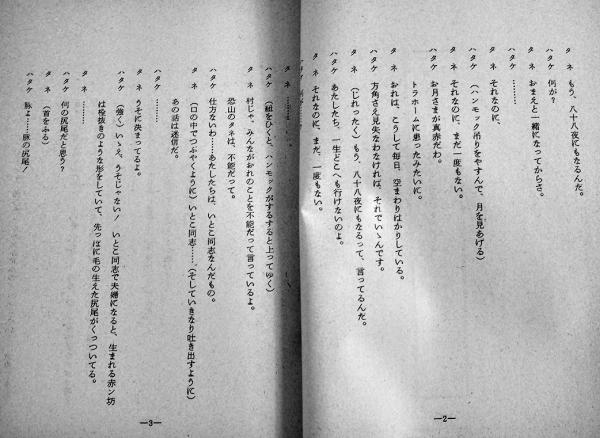 タネ　もう、八十八夜にもなるんだ。
ハタケ　何が？
タネ　おまえと一緒になってからさ。
ハタケ　………
タネ　それなのに。
ハタケ　（ハンモック吊りをやすんで、月を見あげる）
タネ　それなのに、まだ一度もない。
ハタケ　お月さまが真赤だわ。
トラホームに患ったみたいに。
タネ　おれは、こうして毎日、空まわりばかりしている。
ハタケ　方角さえ見失なわなければ、それでいゝんです。
タネ　（じれったく）もう、八十八夜にもなるって、言ってるんだ。
ハタケ　あたしたち、一生どこへも行けないのよ。
タネ　それなのに、まだ、一度もない。
—2—
タネ　………
ハタケ　（紐をひくと、ハンモックがするすると上ってゆく）
タネ　村じゃ、みんながおれのことを不能だって言っているよ。
恐山のタネは、不能だって。
ハタケ　仕方ないわ……あたしたちは、いとこ同志なんだもの。
タネ　（口の中でつぶやくように）いとこ同志……（そしていきなり吐き出すように）
あの話は迷信だ。
ハタケ　………
タネ　うそに決まってるよ。
ハタケ　（強く）いゝえ、うそじゃない！　いとこ同志で夫婦になると、生まれる赤ン坊
は栓抜きのような形をしていて、先っぽに毛の生えた尻尾がくっついてる。
タネ　………
ハタケ　何の尻尾だと思う？
タネ　（首をふる）
ハタケ　豚よ……豚の尻尾！
—3—